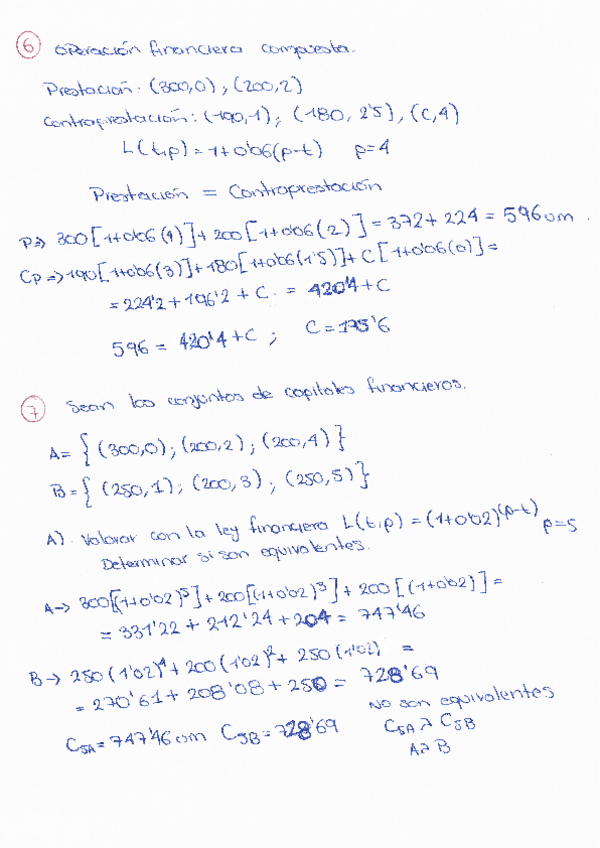 6 operación financiera compuesta.
Prestación: (300,0), (200,2)
Contraprestación: (190,1); (180, 2'5), (C,4)
L(t,p) = 1+0'06(p-t) p=4
Prestación = Contraprestación
P⇒ 300[1+0'06(4)]+200[1+0'06(2)] = 372+224 = 596 um.
Cp⇒190[1+0'06(3)]+180[1+0'06(1'5)]+C[1+0'06(0)]=
= 224'2+196'2+C = 420'4+C
596 = 420'4+C ; C=175'6
7 Sean los conjuntos de capitales financieros.
A= {(300,0); (200,2); (200,4)}
B={(250,1); (200,3); (250,5)}
A). Valorar con la ley financiera L(t,p)=(1+0'02)^(p-t) p=5
Determinar si son equivalentes.
A→ 300[(1+0'02)^5]+200[1+0'02)^3]+200[(1+0'02)]=
= 331'22 + 212'24 + 204 = 747'46
B→ 250(1'02)^4+200(1'02)^2+ 250(1'02) =
= 270'61 + 208'08 + 250 = 728'69
No son equivalentes
C5A=747'46 um C5B=728'69 C5A > C5B
A> B